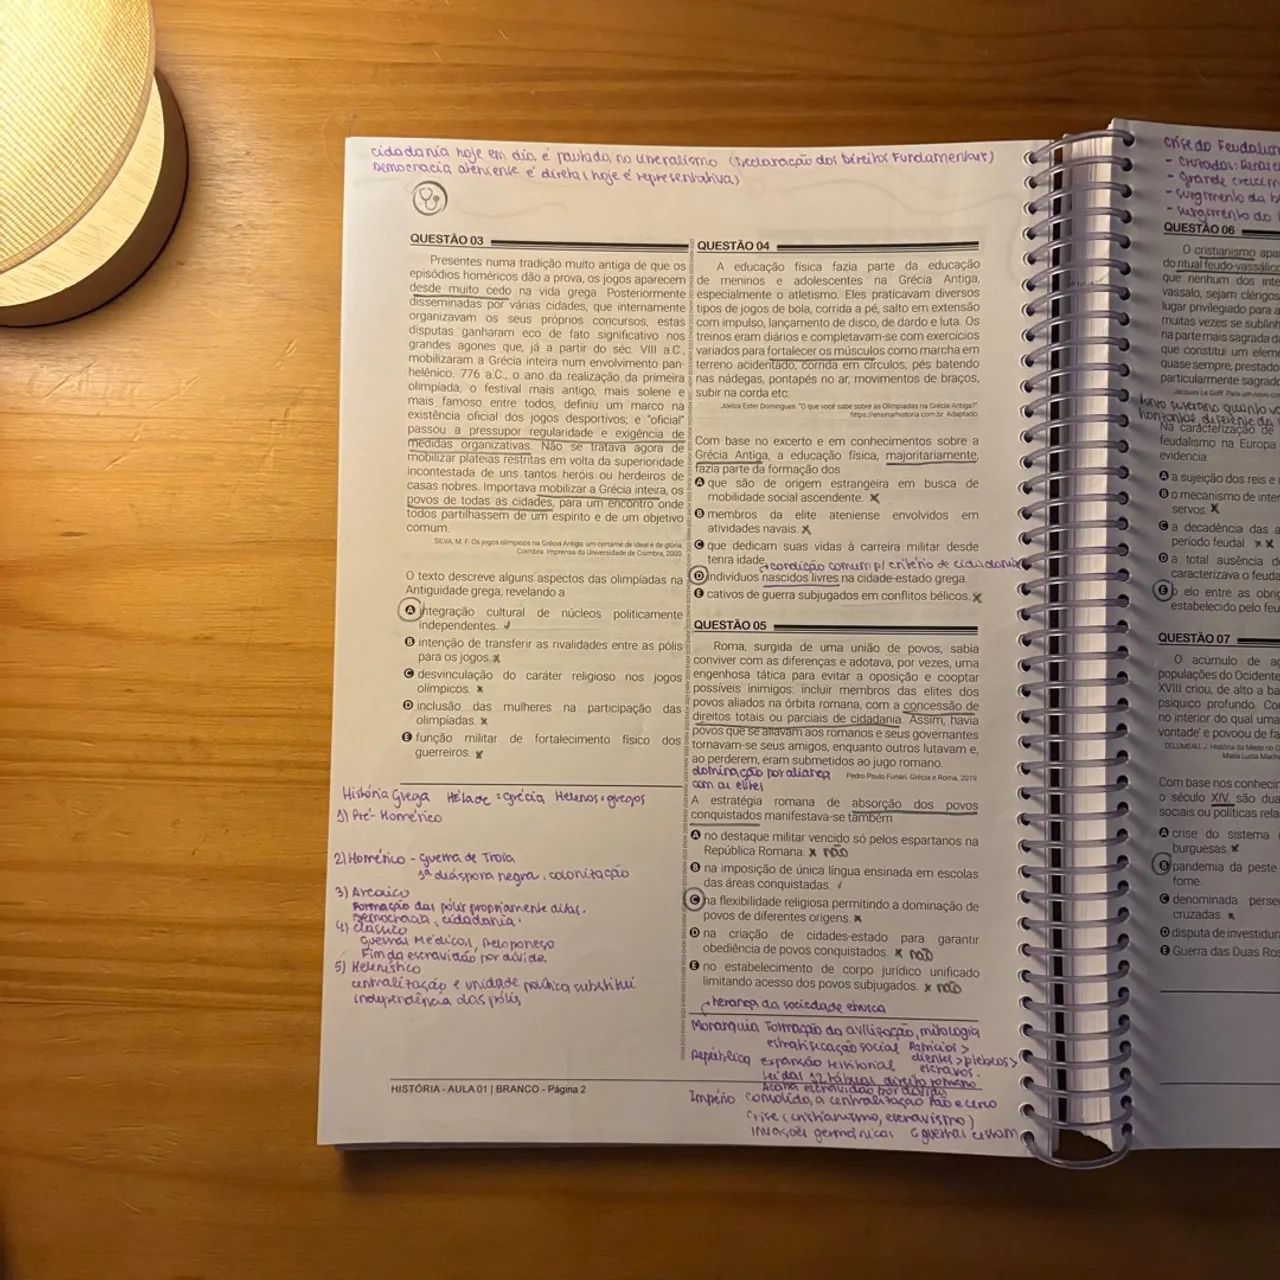 cidadania hoje em dia, é pautado no liberalismo (Declaração dos Direitos Fundamentais)
Democracia ateniense é direta (hoje é representativa)
QUESTÃO 03
Presentes numa tradição muito antiga de que os
episódios homéricos dão a prova, os jogos aparecem
desde muito cedo na vida grega. Posteriormente
disseminadas por várias cidades, que internamente
organizavam os seus próprios concursos, estas
disputas ganharam eco de fato significativo nos
grandes agones que, já a partir do séc. VIII a.C.,
mobilizaram a Grécia inteira num envolvimento pan-
helênico. 776 a.C., o ano da realização da primeira
olimpíada, o festival mais antigo, mais solene e
mais famoso entre todos, definiu um marco na
existência oficial dos jogos desportivos; e "oficial"
passou a pressupor regularidade e exigência de
medidas organizativas. Não se tratava agora de
mobilizar plateias restritas em volta da superioridade
incontestada de uns tantos heróis ou herdeiros de
casas nobres. Importava mobilizar a Grécia inteira, os
povos de todas as cidades, para um encontro onde
todos partilhassem de um espírito e de um objetivo
comum.
SILVA, M. F. Os jogos olímpicos na Grécia Antiga: um certame de ideal e de glória.
Coimbra: Imprensa da Universidade de Coimbra, 2000.
O texto descreve alguns aspectos das olimpíadas na
Antiguidade grega, revelando a
A integração cultural de núcleos politicamente
independentes. ✓
B intenção de transferir as rivalidades entre as pólis
para os jogos. x
C desvinculação do caráter religioso nos jogos
olímpicos. x
D inclusão das mulheres na participação das
olimpíadas. x
E função militar de fortalecimento físico dos
guerreiros. x
História Grega Hélade = Grécia Helenos = gregos
1) Pré-Homérico
2) Homérico - Guerra de Troia
1ª diáspora negra, colonização
3) Arcaico
Formação das pólis propriamente ditas.
Democracia, cidadania.
4) Clássico
Guerras Médicas, Peloponeso
Fim da escravidão por dívida.
5) Helenístico
centralização e unidade política substitui
independência das pólis
HISTÓRIA - AULA 01 | BRANCO - Página 2
QUESTÃO 04
A educação física fazia parte da educação
de meninos e adolescentes na Grécia Antiga,
especialmente o atletismo. Eles praticavam diversos
tipos de jogos de bola, corrida a pé, salto em extensão
com impulso, lançamento de disco, de dardo e luta. Os
treinos eram diários e completavam-se com exercícios
variados para fortalecer os músculos como marcha em
terreno acidentado, corrida em círculos, pés batendo
nas nádegas, pontapés no ar, movimentos de braços,
subir na corda etc.
Joelza Ester Domingues. "O que você sabe sobre as Olimpíadas na Grécia Antiga?"
https://ensinarhistoria.com.br. Adaptado.
Com base no excerto e em conhecimentos sobre a
Grécia Antiga, a educação física, majoritariamente,
fazia parte da formação dos
A que são de origem estrangeira em busca de
mobilidade social ascendente. x
B membros da elite ateniense envolvidos em
atividades navais. x
C que dedicam suas vidas à carreira militar desde
tenra idade.
condição comum p/ critério de cidadania
D indivíduos nascidos livres na cidade-estado grega.
E cativos de guerra subjugados em conflitos bélicos. x
QUESTÃO 05
Roma, surgida de uma união de povos, sabia
conviver com as diferenças e adotava, por vezes, uma
engenhosa tática para evitar a oposição e cooptar
possíveis inimigos: incluir membros das elites dos
povos aliados na órbita romana, com a concessão de
direitos totais ou parciais de cidadania. Assim, havia
povos que se aliavam aos romanos e seus governantes
tornavam-se seus amigos, enquanto outros lutavam e,
ao perderem, eram submetidos ao jugo romano.
dominação por aliança
com as elites
Pedro Paulo Funari. Grécia e Roma, 2019.
A estratégia romana de absorção dos povos
conquistados manifestava-se também
A no destaque militar vencido só pelos espartanos na
República Romana. x não
B na imposição de única língua ensinada em escolas
das áreas conquistadas. ✓
C na flexibilidade religiosa permitindo a dominação de
povos de diferentes origens. x
D na criação de cidades-estado para garantir
obediência de povos conquistados. x não
E no estabelecimento de corpo jurídico unificado
limitando acesso dos povos subjugados. x não
herança da sociedade etrusca
Monarquia Formação da civilização, mitologia
estratificação social Patrícios >
clientes > plebeus >
República expansão territorial escravos.
Lei das 12 tábuas, direito romano
Acaba escravidão por dívida
Império Consolida, a centralização Pão e circo
Crise (cristianismo, escravismo)
Invasões germânicas guerras cessam
Crise do Feudalism
- Cruzadas:
- grande crescim
- surgimento da b
- surgimento do
QUESTÃO 06
O cristianismo apa
do ritual feudo-vassálic
que nenhum dos inte
vassalo, sejam clérigos
lugar privilegiado para a
muitas vezes se sublinh
na parte mais sagrada da
que constitui um elem
quase sempre, prestado
particularmente sagrado
Jacques Le Goff. Para um novo co
tanto suserano quanto v
horizontal, diferente da
Na caracterização de
feudalismo na Europa
evidencia:
A a sujeição dos reis e i
B o mecanismo de inter
servos. x
C a decadência das a
período feudal. x x
D a total ausência d
caracterizava o feuda
E o elo entre as obrig
estabelecido pelo feu
QUESTÃO 07
O acúmulo de ag
populações do Ocidente
XVIII criou, de alto a ba
psíquico profundo. Co
no interior do qual uma
vontade' e povoou de fa
DELUMEAU, J. História do Medo no O
Maria Lucia Mach
Com base nos conhecin
o século XIV são dua
sociais ou políticas rela
A crise do sistema
burguesas. x
B pandemia da peste
fome.
C denominada perse
cruzadas. x
D disputa de investidura
E Guerra das Duas Ros